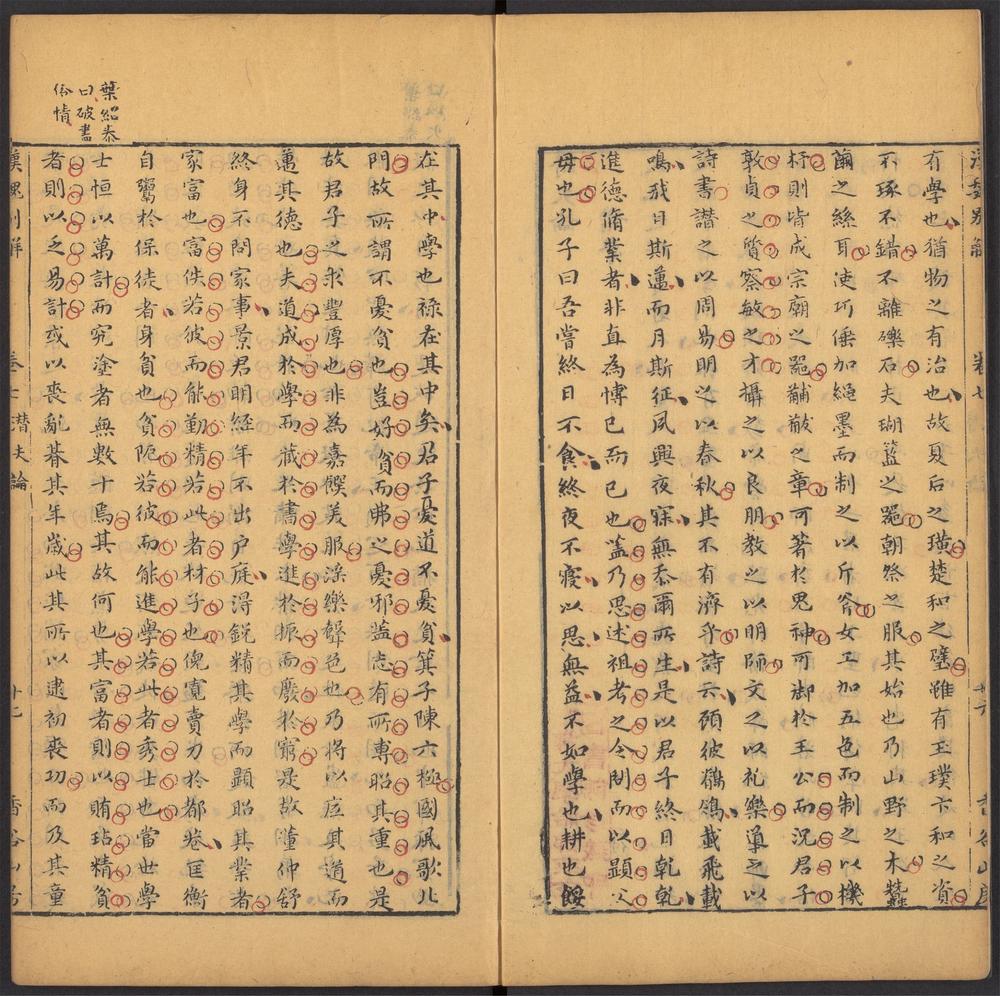 有學也猶物之有治也故夏后之璜楚和之璧雖有玉璞卞和之資
不琢不錯不離礫石夫瑚簋之器朝祭之服其始也乃山野之木蠶
繭之絲耳使巧倕加繩墨而制之以斤斧女工加五色而制之以機
杼則皆成宗廟之器黼黻之章可著於鬼神可御於王公而況君子
敦貞之質察敏之才攝之以良朋教之以明師文之以礼樂導之以
詩書讃之以周易明之以春秋其不有濟乎詩云題彼鶺鴒載飛載
鳴我日斯邁而月斯征夙興夜寐無忝爾所生是以君子終日乾乾
進德脩業者非直為博已而已也盖乃思述祖考之令問而以顯父
母也孔子曰吾嘗終日不食終夜不寢以思無益不如學也耕也餒
在其中學也禄在其中矣君子憂道不憂貧箕子陳六極國風歌北
門故所謂不憂貧也豈好貧而弗之憂邪盖志有所專昭其重也是
故君子之求豐厚也非為嘉饌美服淫樂聲色也乃將以底其道而
邁其德也夫道成於學而藏於書學進於振而廢於窮是故董仲舒
終身不問家事景君明經年不出户庭得鋭精其學而顯昭其業者
家富也富佚若彼而能勤精若此者材子也倪寛賣力於都巷匡衡
自鬻於保徒者身貧也貧阨若彼而能進學若此者秀士也當世學
士恒以萬計而究塗者無數十焉其故何也其富者則以賄玷精貧
者則以乏易計或以喪亂朞其年歲此其所以逮初喪功而及其童
卷七 潛夫論
葉紹泰
曰破盡
俗情